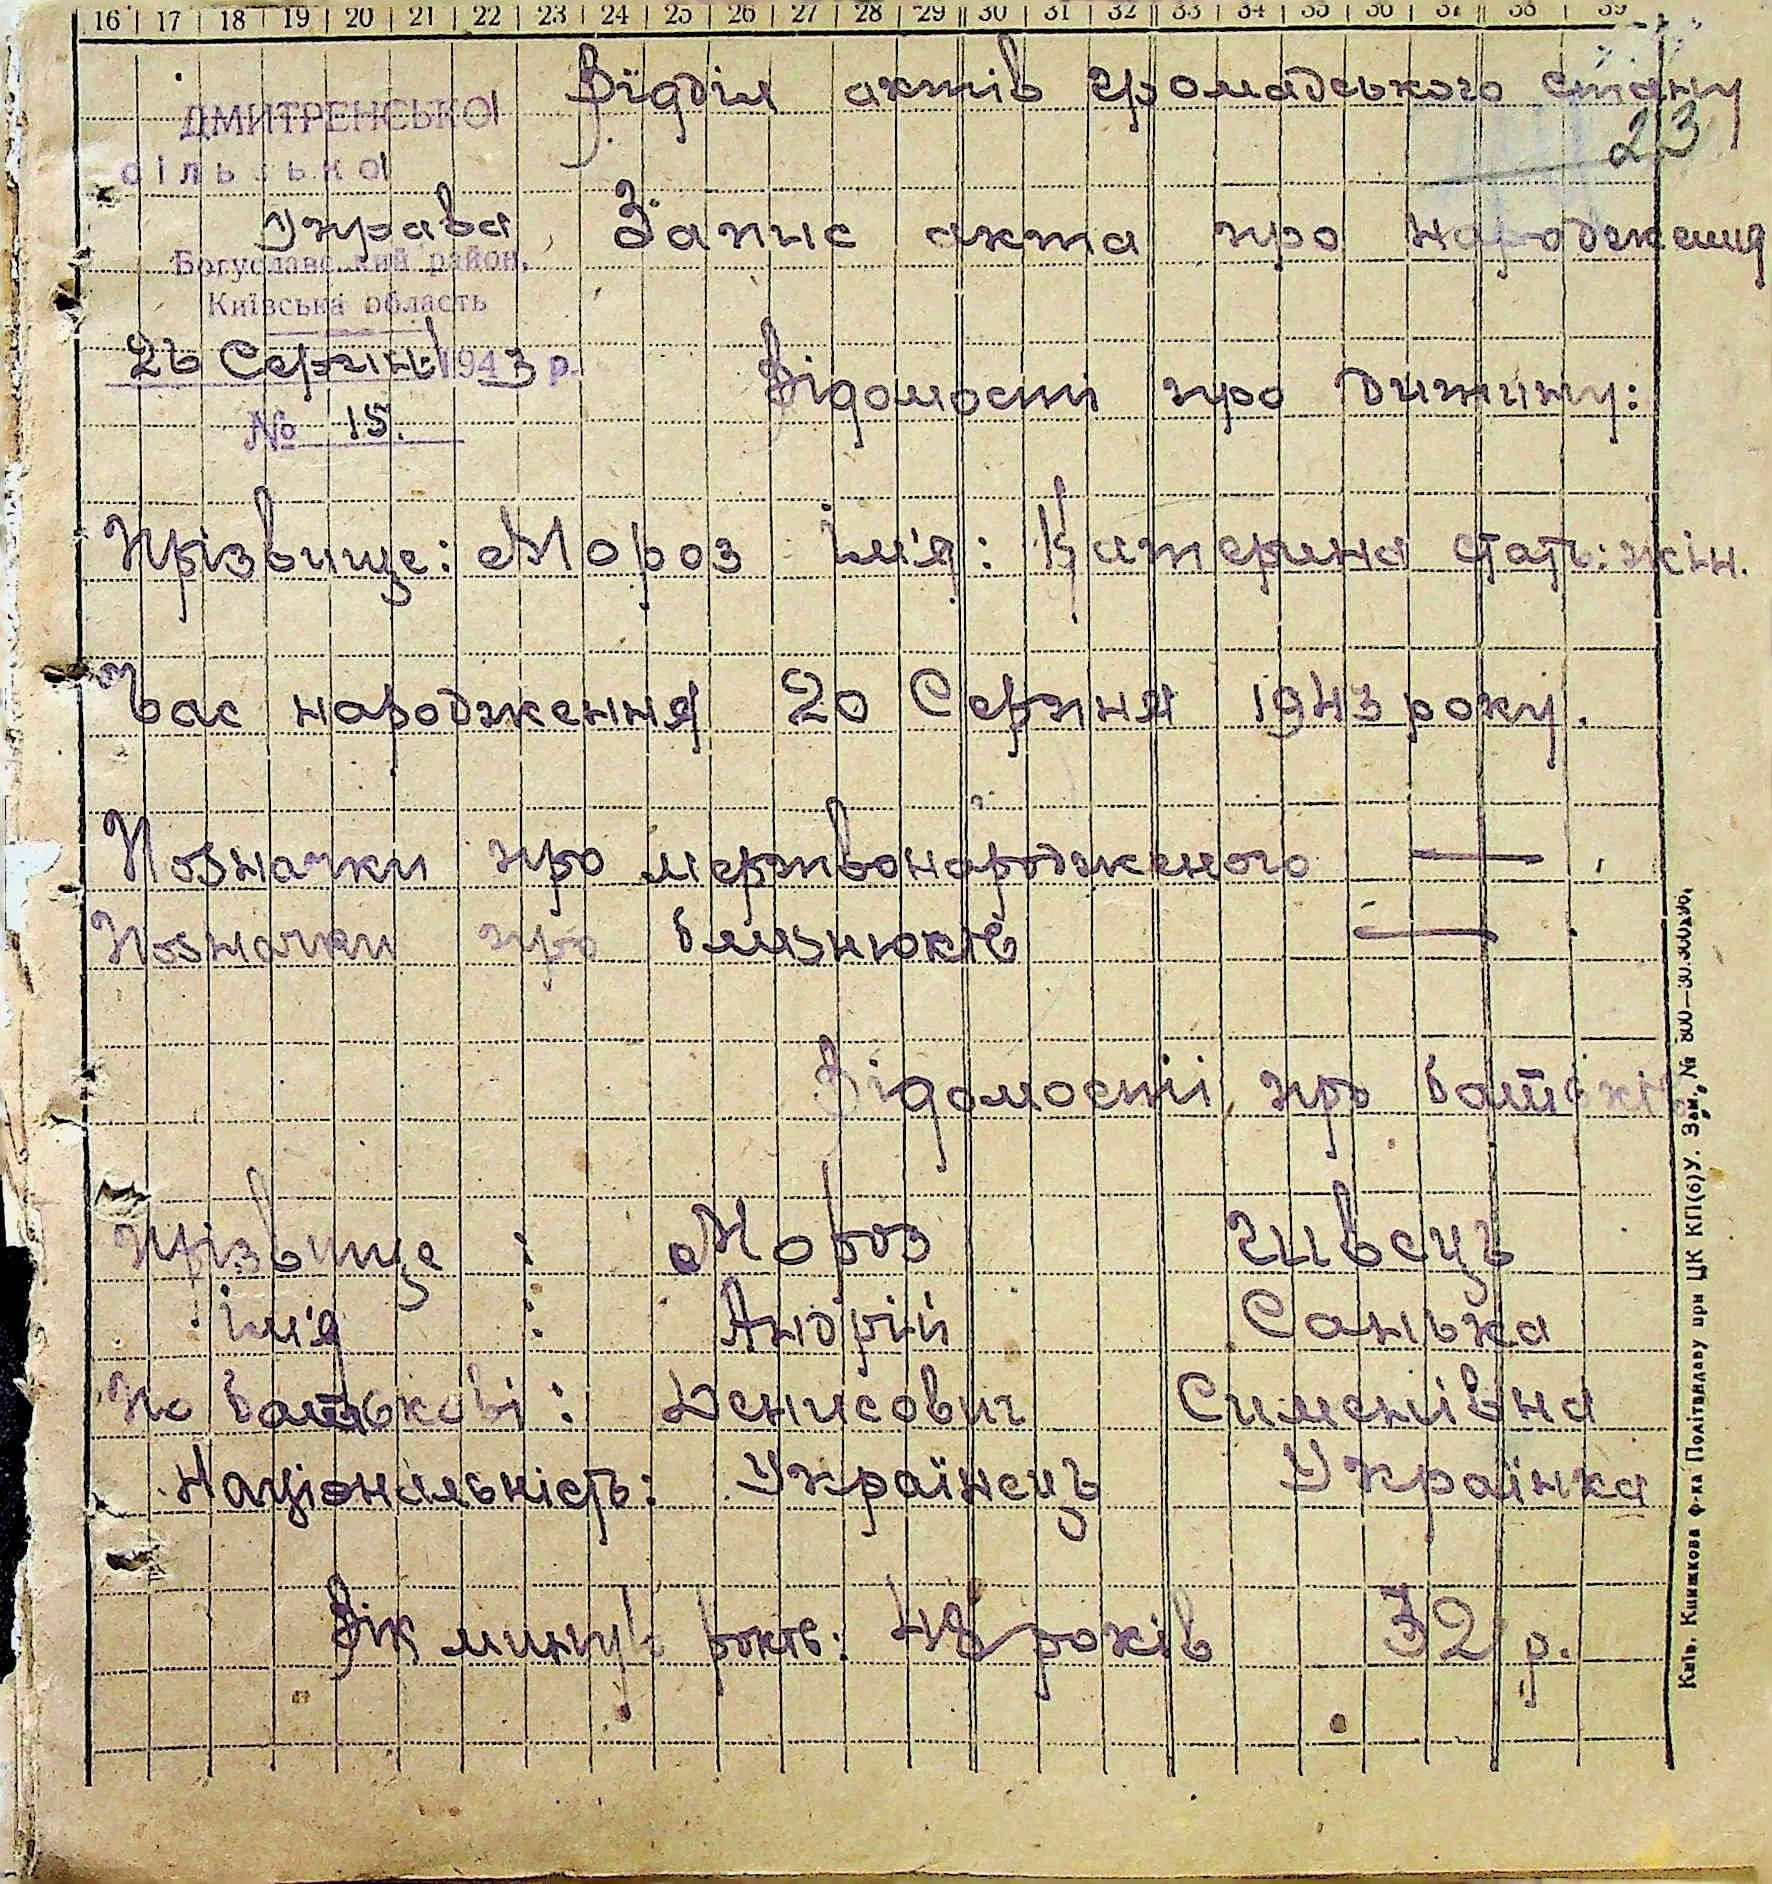 16 17 18 19 20 21 22 23 24 25 26 27 28 29 30 31 32 33 34 35 36 37 38 39
Відділ актів громадського стану
ДМИТРЕНСЬКОІ
23
сільської
Управа Запис акта про народження
Богуславський район,
Київська область
26 Серпня 1943 р.
Відомості про дитину:
№ 15.
Прізвище: Мороз Ім'я: Катерина стать: жін.
Час народження 20 Серпня 1943 року.
Позначки про мертвонародженого —
Позначки про близнюків —
Відомості про батьків
Прізвище : Мороз Швець
Ім'я : Андрій Санька
По батькові : Денисович Сименівна
Національність: Українець Українка
Вік минув. років: 48 років 32 р.
Київ. Книжкова ф-ка Політвидаву при ЦК КП(б)У. Зам. № 800—30.000